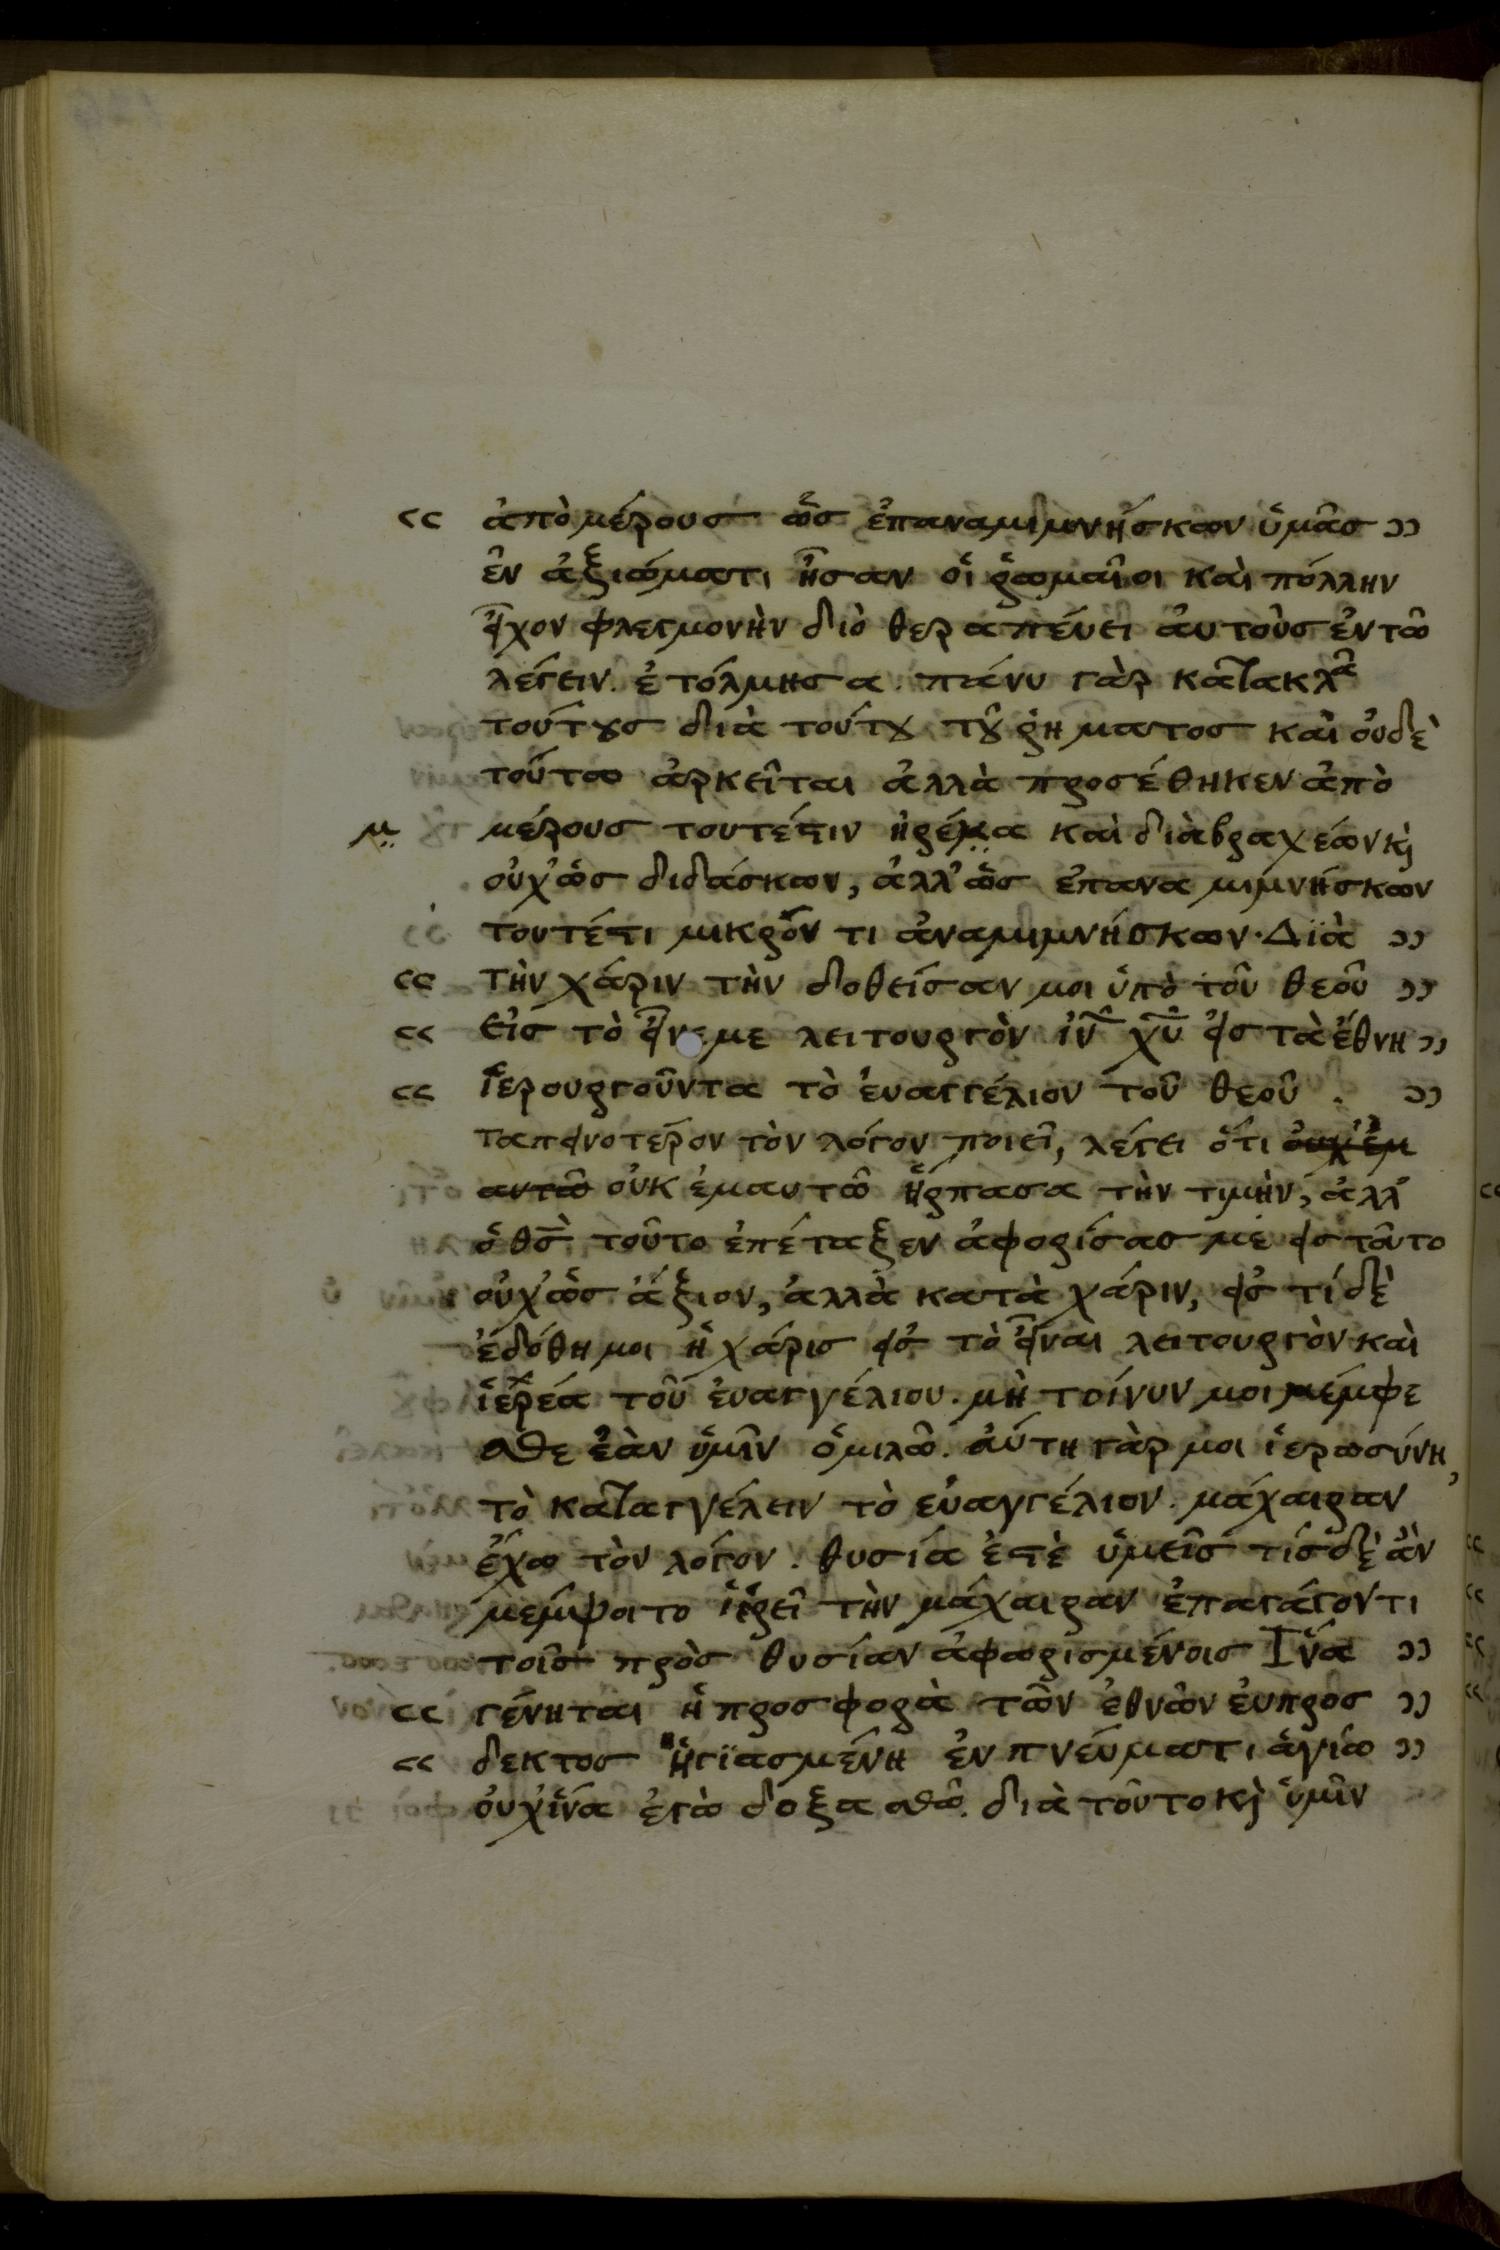 ‹‹ ἀπὸ μέρους ὡς ἐπαναμιμνήσκων ὑμᾶς ››
ἐν ἀξιώματι ἦσαν οἱ ῥωμαῖοι καὶ πόλλην
εἶχον φλεγμονὴν διὸ θεραπέυει ἀυτοὺς ἐν τῶ
λέγειν. ἐτόλμησα. πάνυ γὰρ κατακλᾶ
τούτȣς διὰ τούτȣ τȣ̂ ῥήματος καὶ ὀυδὲ
τούτω ἀρκεῖται ἀλλὰ προσέθηκεν ἀπὸ
μ μέρους τουτέϛιν ἠρέμα καὶ διὰ βραχέων κὶ
οὐχ ὡς διδάσκων, ἀλλ' ὡς ἐπαναμιμνήσκων
τουτέϛι μικρόν τι ἀναμιμνήσκων. Διὰ ››
‹‹ τὴν χάριν τὴν δοθείσαν μοι ὑπὸ τοῦ θεοῦ ››
‹‹ εἰς τὸ εἶνε με λειτουργὸν ἰῦ χῦ εἰς τὰ ἔθνη ››
‹‹ ἱερουργοῦντα τὸ ἐυαγγέλιον τοῦ θεοῦ. ››
ταπεινοτέρον τὸν λόγον ποιεῖ, λέγει ὅτι οὐχ ἐμ
αυτῶ οὐκ ἐμαυτῶ ἥρπασα τὴν τιμὴν, ἀλλ'
ὁ θς̅ τοῦτο ἐπέταξεν ἀφορίσας με εἰς τοῦτο
οὐχ ὡς ἄξιον, ἀλλὰ κατὰ χάριν, εἰς τί δὲ
ἐδόθη μοι ἡ χάρις εἰς τὸ εἶναι λειτουργὸν καὶ
ἱερέα τοῦ ἐυαγγέλιου. μὴ τοίνυν μοι μέμφε
σθε ἐὰν ὑμῖν ὁμιλῶ. ἀύτη γάρ μοι ἱερωσύνη,
τὸ καταγγέλειν τὸ εὐαγγέλιον. μάχαιραν
ἔχω τὸν λόγον. θυσία ἐϛὲ ὑμεῖς τίς δὲ ἂν
μέμψοιτο ἱερεῖ τὴν μάχαιραν ἐπαγάγοντι
τοῖς πρὸς θυσίαν ἀφωρισμένοις Ἵνα ››
‹‹ γένηται ἡ προσφορὰ τῶν ἐθνῶν ἐυπρος ››
‹‹ δεκτος ἡγϊασμένη ἐν πνεύματι ἁγίω ››
οὐχ ἵνα ἐγὼ δοξασθῶ. διὰ τοῦτο κὶ ὑμῖν